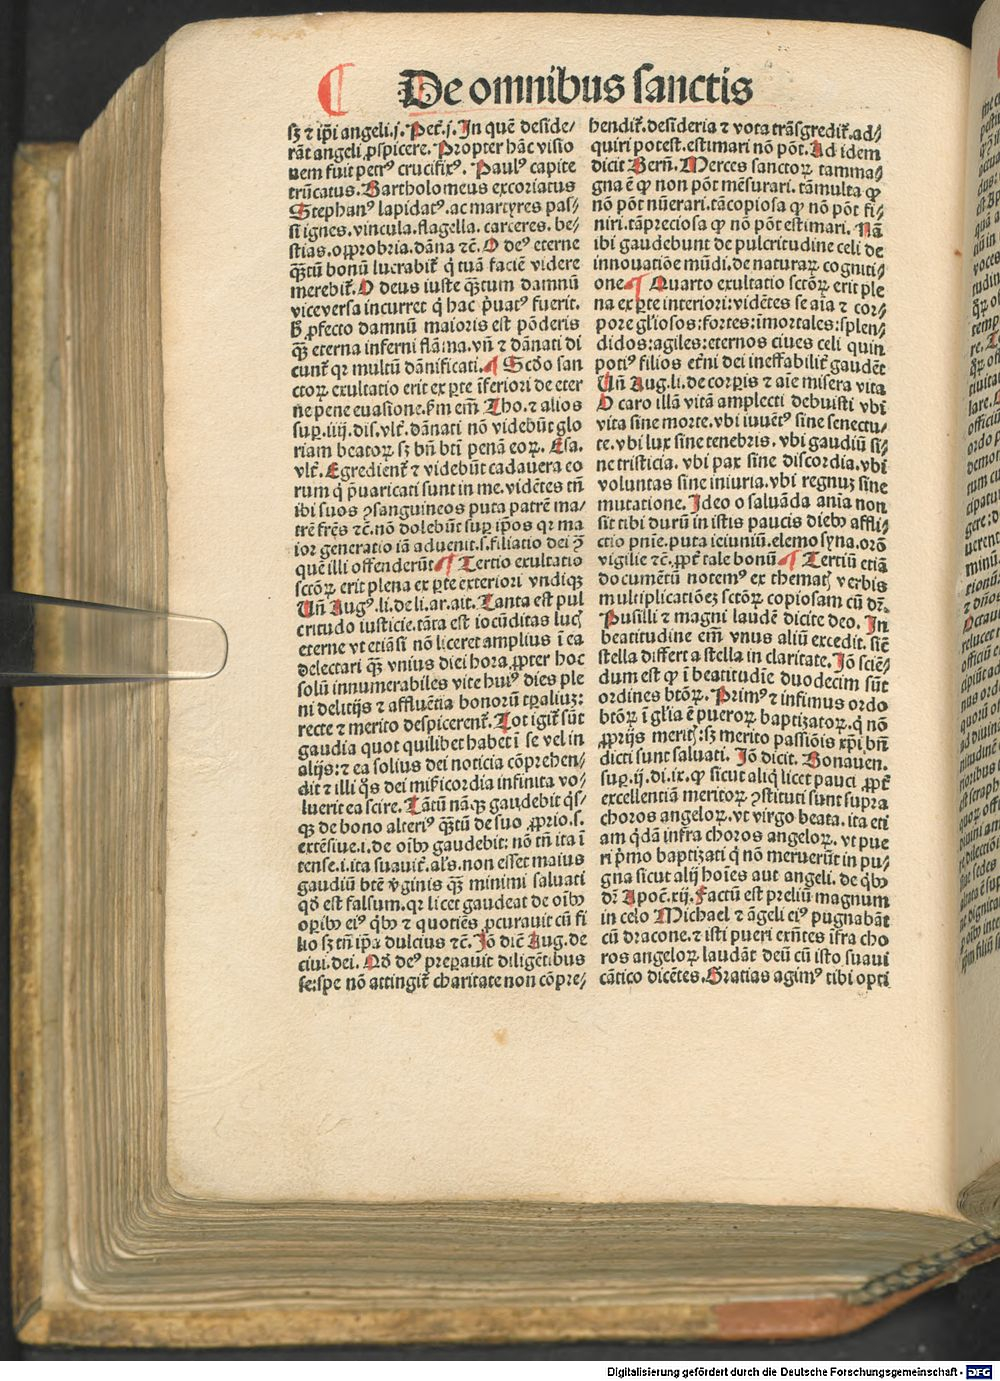 De omnibus sanctis
sꝫ ⁊ ip̄i angeli.j. Pet̄.j. In quē deside⸗
rāt angeli ꝓspicere. Propter hāc visio
nem fuit petrꝰ crucifixꝰ. Paulꝰ capite
trūcatus. Bartholomeus excoriatus
Stephanꝰ lapidatꝰ. ac martyres pas⸗
si ignes. vincula. flagella. carceres. be⸗
stias. opprobria. dāna ⁊c̄. O deꝰ eterne
qꝫ̄tū bonū lucrabit̄ q̇ tuā faciē videre
merebit̄. O deus iuste qꝫ̄tum damnū
viceversa incurret q̇ hac p̄uatꝰ fuerit.
ꝓfecto damnū maioris est pōderis
qꝫ̄ eterna inferni flāma. vn̄ ⁊ dānati di
cunt̄ qr multū dānificati. ¶ Scd̄o san
ctoꝝ exultatio erit ex ꝑte īferiori de eter
ne pene euasione. ẜm em̄ Tho. ⁊ alios
suꝑ .iiij. dis. vlt̄. dānati nō videbūt glo
riam beatoꝝ sꝫ bn̄ bt̄i penā eoꝝ. Esa.
vlt̄. Egredient̄ ⁊ videbūt cadauera eo
rum q̇ p̄uaricati sunt in me. vidētes tn̄
ibi suos ꝯsanguineos puta patrē ma⸗
trē fr̄es ⁊c̄. nō dolebūt suꝑ ip̄os qr ma
ior generatio iā aduenit. s. filiatio dei ꝯ̄
quē illi offenderūt ¶ Tertio exultatio
sctōꝝ erit plena ex ꝑte exteriori vndiqꝫ
Un̄ Augꝰ. li. de li. ar. ait. Tanta est pul
critudo iusticie. tāta est iocūditas lucꝭ
eterne vt etiāsi nō liceret amplius ī ea
delectari qꝫ̄ vnius diei hora. ꝓpter hoc
solū innumerabiles vite huiꝰ dies ple
ni delitijs ⁊ affluētia bonorū tꝑaliuꝫ:
recte ⁊ merito despicerent̄. Tot igit̄ sūt
gaudia quot quilibet habet ī se vel in
alijs: ⁊ ea solius dei noticia cōprehen⸗
dit ⁊ illi q̇s dei mīe̅icordia infinita vo⸗
luerit ea scire. Tātū nāqꝫ gaudebit q̇s⸗
qꝫ de bono alteriꝰ qꝫ̄tū de suo ꝓprio. s.
extēsiue. i. de oīb⁹ gaudebit: nō tn̄ ita ī
tense. i. ita suauit̄. al̄s. non esset maius
gaudiū btē v̄ginis qꝫ̄ minimi saluati
qd̄ est falsum. qr licet gaudeat de oīb⁹
opib⁹ eiꝰ q̇b⁹ ⁊ quotiēs ꝓcurauit cū fi
lio sꝫ tn̄ ip̄a dulcius ⁊c̄. Iō dic̄ Aug. de
ciui. dei. Qd̄ deꝰ preparauit diligētibus
se: spe nō attingit̄ charitate non cōpre⸗
hendit̄. desideria ⁊ vota trāsgredit̄. ad⸗
quiri potest. estimari nō pōt. Ad idem
dicit Bern̄. Merces sanctoꝝ tam ma⸗
gna ē ꝙ non pōt mēsurari. tā multa ꝙ
nō pōt nūerari. tā copiosa ꝙ nō pōt fi⸗
niri. tā preciosa ꝙ nō pōt estimari. Nā
ibi gaudebunt de pulcritudine celi de
innouatiōe mūdi. de naturaꝝ cogniti⸗
one ¶ Quarto exultatio sctōꝝ erit ple
na ex ꝑte interiori: vidētes se aīa ⁊ cor⸗
pore gl̄iosos: fortes: īmortales: splen⸗
didos: agiles: eternos ciues celi quin
potiꝰ filios etn̄i dei ineffabilit̄ gaudēt
Un̄ Aug. li. de corꝑis ⁊ aīe misera vita
O caro illā vitā amplecti debuisti vbi
vita sine morte. vbi iuuētꝰ sine senectu⸗
te. vbi lux sine tenebris. vbi gaudiū si⸗
ne tristicia. vbi pax sine discordia. vbi
voluntas sine iniuria. vbi regnuꝫ sine
mutatione. Ideo o saluāda anīa non
sit tibi durū in istis paucis dieb⁹ affli⸗
ctio pn̄ie. puta ieiuniū. elemosyna. orō
vigilie ⁊c̄. ꝓpt̄ tale bonū ¶ Tertiū etiā
documētū notemꝰ ex thematꝭ verbis
multiplicatiōeꝫ sctōꝝ copiosam cū dr̄.
Pusilli ⁊ magni laudē dicite deo. In
beatitudine em̄ vnus aliū excedit. sic̄
stella differt a stella in claritate. Iō sciē⸗
dum est ꝙ ī beatitudīe duodecim sūt
ordines btōꝝ. Primꝰ ⁊ infimus ordo
btōꝝ ī gl̄ia ē pueroꝝ baptizatoꝝ. q̇ nō
ꝓprijs meritꝭ: sꝫ merito passiōis xp̄i bn̄
dicti sunt saluati. Iō dicit. Bonauen.
suꝑ .ij. di. ix. ꝙ sicut aliq̇ licet pauci ꝓpt̄
excellentiā meritoꝝ ꝯstituti sunt supra
choros angeloꝝ. vt virgo beata. ita eti
am q̇dā infra choros angeloꝝ. vt pue
ri p̄mo baptizati q̇ nō meruerūt in pu⸗
gna sicut alij hoīes aut angeli. de q̇b⁹
dr̄ Apoc̄. xij. Factū est preliū magnum
in celo Michael ⁊ āgeli eiꝰ pugnabāt
cū dracone. ⁊ isti pueri exn̄tes īfra cho
ros angeloꝝ laudāt deū cū isto suaui
cātico dicētes. Gratias agimꝰ tibi opti
Digitalisierung gefördert durch die Deutsche Forschungsgemeinschaft - DFG